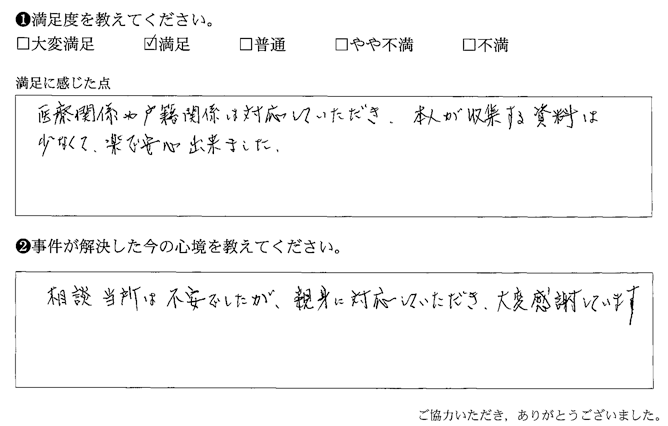 ❶満足度を教えてください。
□大変満足 ☑満足 □普通 □やや不満 □不満
満足に感じた点
医療関係や戸籍関係は対応していただき、本人が収集する資料は
少なくて、楽で安心出来ました。
❷事件が解決した今の心境を教えてください。
相談当所は不安でしたが、親身に対応していただき、大変感謝しています
ご協力いただき、ありがとうございました。